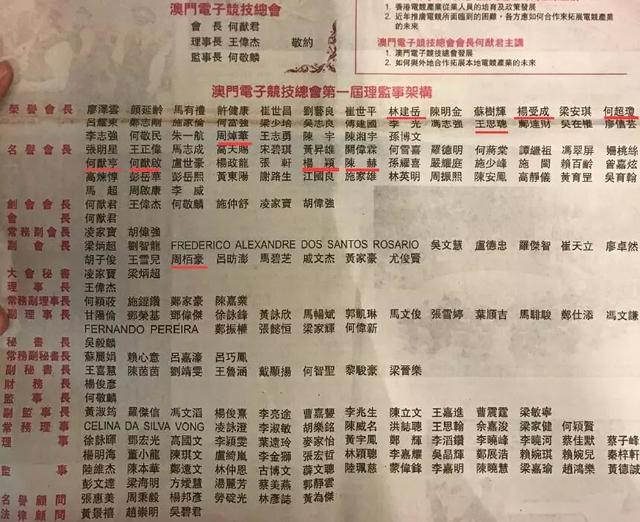 澳門電子競技總會
會長 何猷君
理事長 王偉杰 敬約
監事長 何敬麟
1. 香港電競產業從業人員的培育及政策發展
2. 近年推廣電競所面臨到的困難，各方應如何合作來拓展電競產業
的未來
澳門電子競技總會會長何猷君主講
1. 澳門電子競技總會發展
2. 如何與外地合作拓展本地電競產業的未來
澳門電子競技總會第一屆理監事架構
榮譽會長 廖澤雲 顏延齡 馬有禮 許健康 崔世昌 劉藝良 崔世平 林建岳 陳明金 蘇樹輝 楊受成 梁安琪 何超瓊
呂耀東 鄭志剛 施家倫 何富強 梁少培 吳志良 傅建國 李光 馮志強 王思聰 鄭達財 吳在權
李志強 何敬民 朱一航 周焯華 王志勇 陳宇 陳湘宇 孫博文
名譽會長 張明星 王正偉 馬志成 高天賜 宋碧琪 黃昇雄 關偉霖 何雪喜 羅德明 何蔣棠 譚繼祖 馮翠屏 姍桃絲
何猷亨 何猷啟 盧世豪 楊政龍 張軒 楊穎 陳赫 孫耀喜 嚴耀庭 施少峰 施閩 賴百齡 曾嘉炫
高煉惇 彭岳華 彭岳熙 黃東陽 謝路生 江國良 施家雄 林英明 周振熙 陳安鳳 高靜儀 黃育罡 吳育翰
馬超 周啟康 李威
創會會長 何猷君 王偉杰 何敬麟 施仲舒 凌家寶 胡偉強
會長 何猷君
常務副會長 凌家寶 胡偉強
副會長 梁炳超 劉智龍 FREDERICO ALEXANDRE DOS SANTOS ROSARIO 吳文慧 盧德忠 羅傑智 崔天立 廖卓然
胡子俊 王雪兒 周栢豪 呂助澎 馬碧芝 戚文杰 黃家豪 尤俊賢
大會秘書 凌家寶 梁炳超
理事長 王偉杰
常務副理事長 何穎荍 施錕鑽 鄭家豪 陳嘉業
副理事長 甘陽倫 鄧榮基 鄧偉傑 徐詠鋒 黃詠欣 馬暢斌 郭凱琳 馬文俊 張雪婷 葉順吉 馬聊駿 鄭仕添 馮文謙
FERNANDO PEREIRA 鄭振權 張懿恒 梁家輝 何偉新
秘書長 吳毅麟
常務副秘書長 蘇麗娟 賴心意 呂嘉濠 呂巧鳳
副秘書長 王喜慧 陳茵茵 劉靖雯 王魯涵 戴顯揚 何智聖 黎駿豪 梁晉樂
財務長 楊俊彥
監事長 何敬麟
副監事長 黃淑筠 羅傑信 馮文滔 楊俊熹 李亮途 曹嘉譽 李兆生 陳立文 王嘉進 曹震霆 梁敏寧
常務理事 CELINA DA SILVA VONG 凌詠澄 李淑敏 胡樂銘 陳威名 洪誌聰 王思翰 佘嘉浚 梁家健 何穎賢
理事 徐詠暉 鄧宏光 高國文 李穎雯 葉遠玲 麥家怡 黃宇鳳 鄭輝 李滔鑽 李曉峰 李曉河 蔡佳默 蔡子峰
楊明海 董小龍 陳琪文 盧綺嵐 李金獅 張宏哲 林穎聰 李嘉耀 吳晶輝 鄭展浩 賴婉琪 賴婉兒 秦梓軒
監事 陸維杰 陳本華 鄭遠文 林仲恩 古博文 薛文聰 陸珮慈 蒙偉鋒 李嘉明 陳曉慧 梁嘉瑜 趙鴻業 黃德誠
彭文達 梁海明 方媛慧 湯麗芳 蔡美燕 郭靜雲
名譽顧問 張惠美 周秉毅 楊邦彥 勞碇光 林彥誌 黃為傑
法律顧問 黃景禧 趙崇明 吳碧君